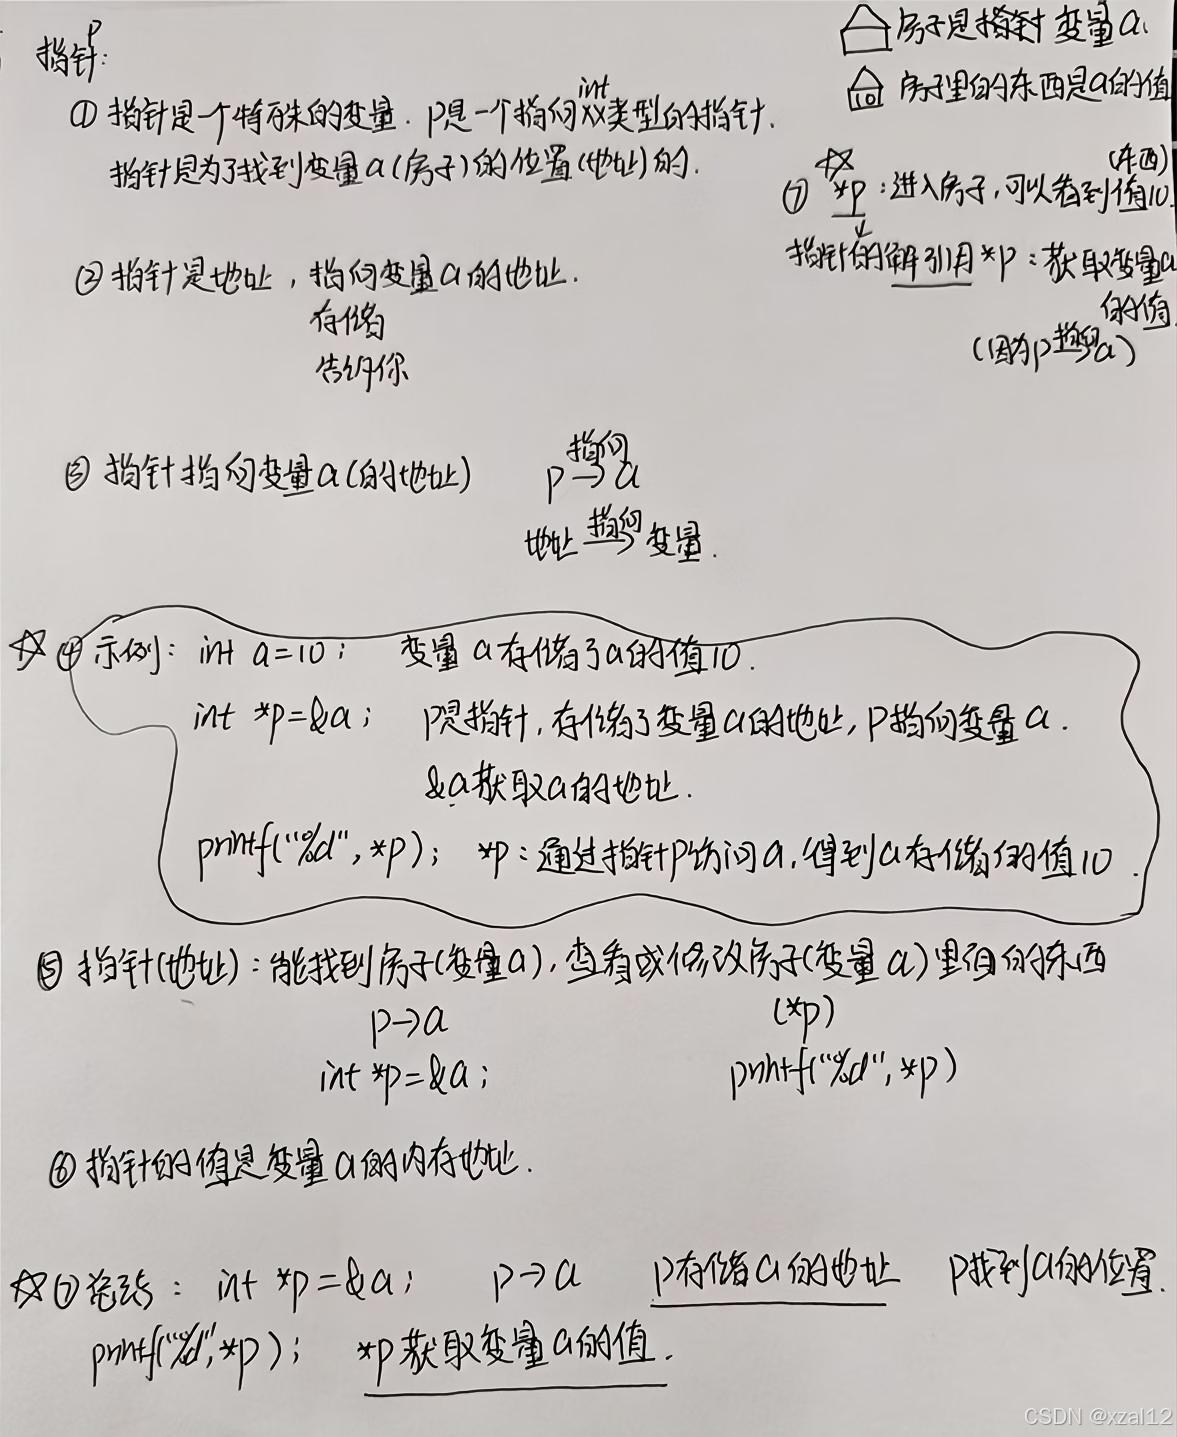 指针p:
① 指针是一个特殊的变量. p是一个指向int xx类型的指针.
指针是为了找到变量a(房子)的位置(地址)的.
房子是指针 变量a.
10 房子里的东西是a的值
⑦ *p:进入房子,可以看到值10. (东西)
指针的解引用 *p:获取变量a
的值
(因为p指向a)
② 指针是地址,指向变量a的地址.
存储
告诉你
③ 指针指向变量a(的地址)
p→a 指向
地址 指向→ 变量.
④ 示例: int a=10; 变量a存储了a的值10.
int *p=&a; p是指针,存储了变量a的地址,p指向变量a.
&a获取a的地址.
printf("%d",*p); *p:通过指针p访问a,得到a存储的值10.
⑤ 指针(地址):能找到房子(变量a),查看或修改房子(变量a)里面的东西
p→a (*p)
int *p=&a; printf("%d",*p)
⑥ 指针的值是变量a的内存地址.
⑦ 总结: int *p=&a; p→a p存储a的地址 p找到a的位置.
printf("%d",*p); *p获取变量a的值.
CSDN @xzal12